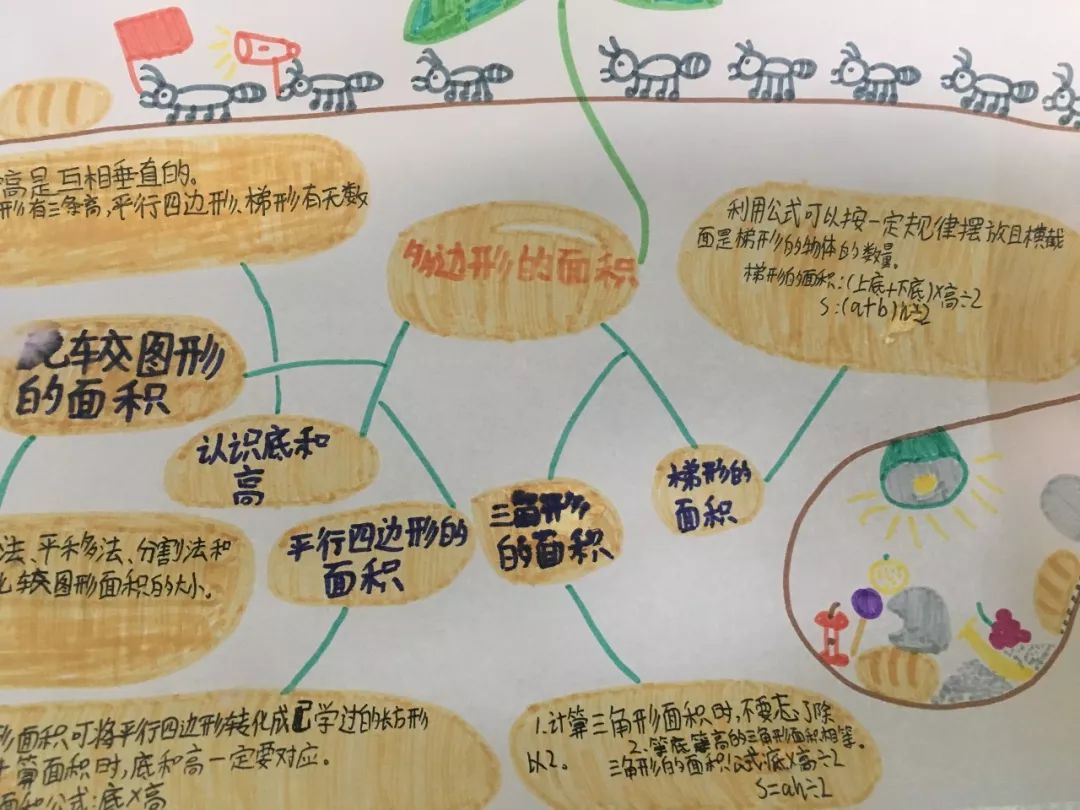 高是互相垂直的。
形有三条高,平行四边形、梯形有无数
多边形的面积
利用公式可以按一定规律摆放且横截
面是梯形的物体的数量。
梯形的面积:(上底+下底)×高÷2
S:(a+b)h÷2
比较图形
的面积
认识底和
高
平行四边形的
面积
三角形
的面积
梯形的
面积
法、平移法、分割法和
比较图形面积的大小。
形面积可将平行四边形转化成已学过的长方形
算面积时,底和高一定要对应。
面积公式:底×高
1.计算三角形面积时,不要忘了除
以2。
2.等底等高的三角形面积相等。
三角形的面积公式:底×高÷2
S=ah÷2